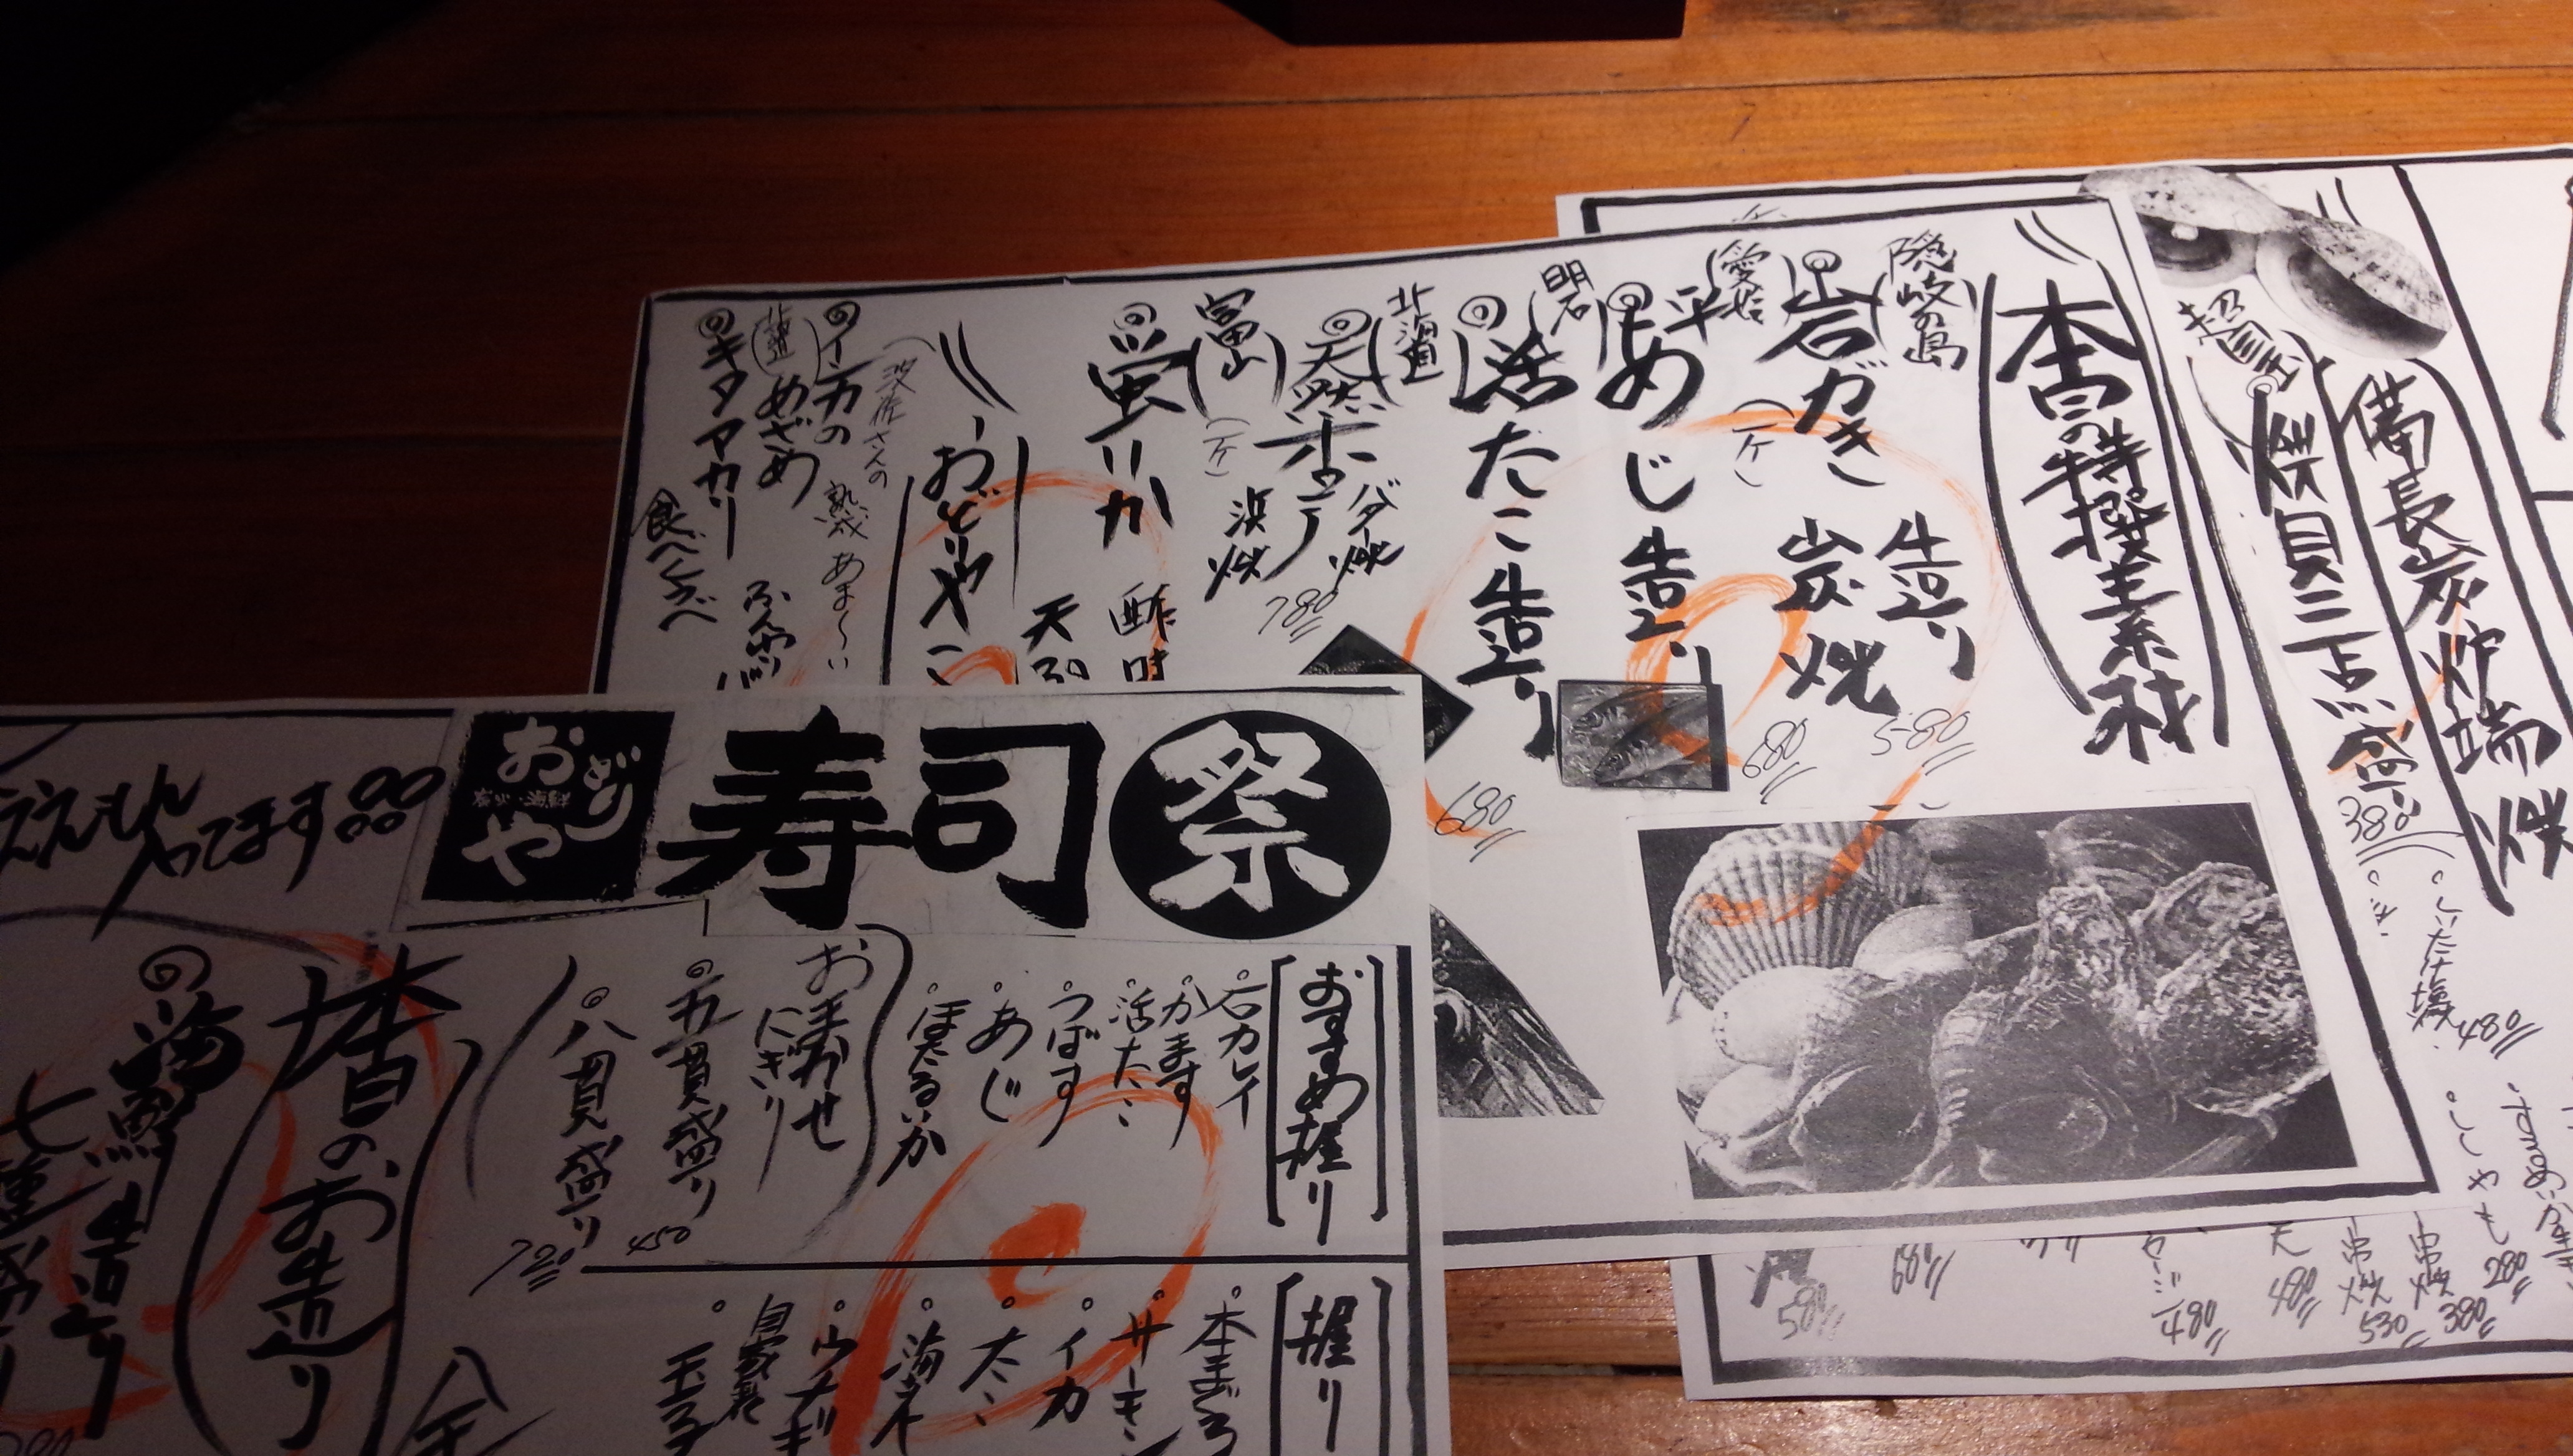 備長炭炉端焼
焼貝三点盛り
380
しいたけ塩
480
ししゃも
280
串焼
380
串焼
530
天
480
480
580
本日の特撰素材
隠岐の島
岩がき
(一ケ)
造り
炭焼
580
愛媛
平あじ
造り
680
明石
活たこ
造り
680
北海道
天然ホタテ
バター焼
浜焼
(一ケ)
780
富山
蛍いか
酢味
天ぷ
おどりやこ
インカの
めざめ
熟成
あま〜い
北海道
キタアカリ
食べくらべ
寿司祭
おどりや
炭火・海鮮
ええもん
やってます
おすすめ握り
石カレイ
かます
活たこ
つばす
あじ
ほたるいか
おまかせ
にぎり
五貫盛り
450
八貫盛り
720
握り
本まぐろ
サーモン
イカ
大
海老
ウナギ
自家製
玉子
本日のお造り
海鮮
造り
七種盛り